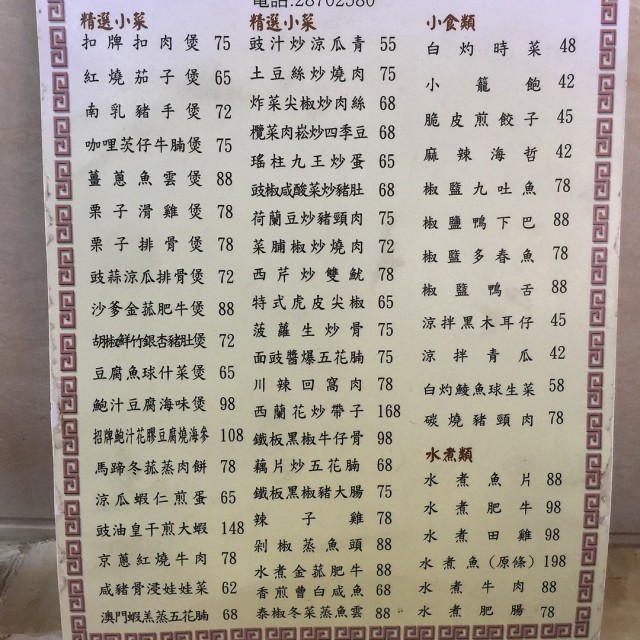 電話:28762580
精選小菜
扣牌扣肉煲 75
紅燒茄子煲 65
南乳豬手煲 72
咖哩茨仔牛腩煲 75
薑蔥魚雲煲 88
栗子滑雞煲 78
栗子排骨煲 78
豉蒜涼瓜排骨煲 72
沙爹金菰肥牛煲 88
胡椒鮮竹銀杏豬肚煲 72
豆腐魚球什菜煲 65
鮑汁豆腐海味煲 98
招牌鮑汁花膠豆腐燒海參 108
馬蹄冬菰蒸肉餅 78
涼瓜蝦仁煎蛋 65
豉油皇干煎大蝦 148
京蔥紅燒牛肉 78
咸豬骨浸娃娃菜 62
澳門蝦羔蒸五花腩 68
精選小菜
豉汁炒涼瓜青 55
土豆絲炒燒肉 75
炸菜尖椒炒肉絲 68
欖菜肉崧炒四季豆 68
瑤柱九王炒蛋 65
豉椒咸酸菜炒豬肚 68
荷蘭豆炒豬頸肉 75
菜脯椒炒燒肉 72
西芹炒雙魷 78
特式虎皮尖椒 65
菠蘿生炒骨 75
面豉醬爆五花腩 75
川辣回窩肉 78
西蘭花炒帶子 168
鐵板黑椒牛仔骨 98
藕片炒五花腩 68
鐵板黑椒豬大腸 75
辣子雞 78
剁椒蒸魚頭 88
水煮金菰肥牛 88
香煎曹白咸魚 68
泰椒冬菜蒸魚雲 88
小食類
白灼時菜 48
小籠飽 42
脆皮煎餃子 45
麻辣海哲 42
椒鹽九吐魚 78
椒鹽鴨下巴 88
椒鹽多春魚 78
椒鹽鴨舌 88
涼拌黑木耳仔 45
涼拌青瓜 42
白灼鯪魚球生菜 58
碳燒豬頸肉 78
水煮類
水煮魚片 88
水煮肥牛 98
水煮田雞 98
水煮魚(原條) 198
水煮牛肉 88
水煮肥腸 78